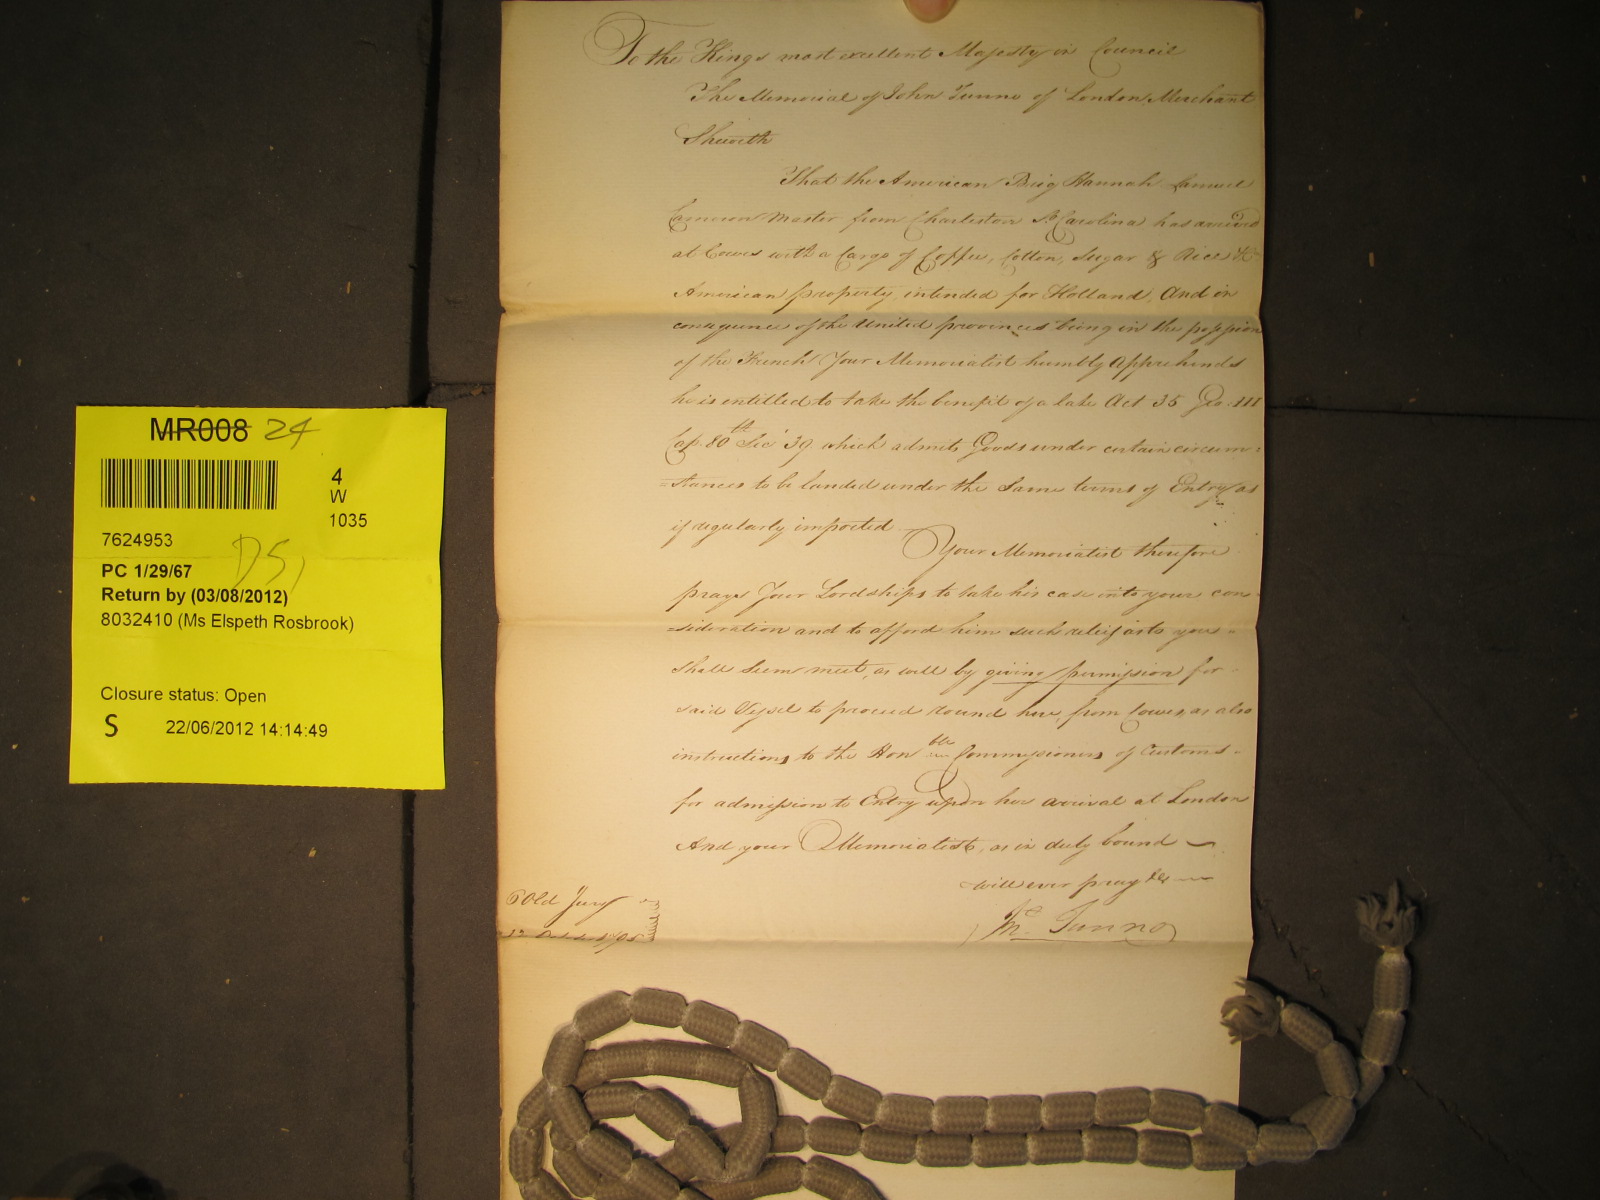 MR008 24
4
W
1035
7624953
DS,
PC 1/29/67
Return by (03/08/2012)
8032410 (Ms Elspeth Rosbrook)
Closure status: Open
S 22/06/2012 14:14:49
To the Kings most excellent Majesty in Council
The Memorial of John Tunno of London Merchant
Sheweth
That the American Brig Hannah Samuel
Cameron Master from Charleston So. Carolina has arrived
at Cowes with a Cargo of Coffee, Cotton, Sugar & Rice &c
American property, intended for Holland, And in
consequence of the United provinces being in the possession
of the French Your Memorialist humbly Apprehends
he is entitled to take the benefit of a late Act 35 Geo. III
Cap. 80th Sec. 39 which admits Goods under certain circum=
=stances to be landed under the same terms of Entry as
if regularly imported —
Your Memorialist therefore
prays Your Lordships to take his case into your con=
=sideration and to afford him such relief as to you
shall seem meet, as well by giving permission for
said Vessel to proceed round here, from Cowes, as also
instructions to the Honble Commissioners of Customs
for admission to Entry upon her arrival at London
And your Memorialist, as in duty bound —
will ever pray &c —
Jno. Tunno
6 Old Jury